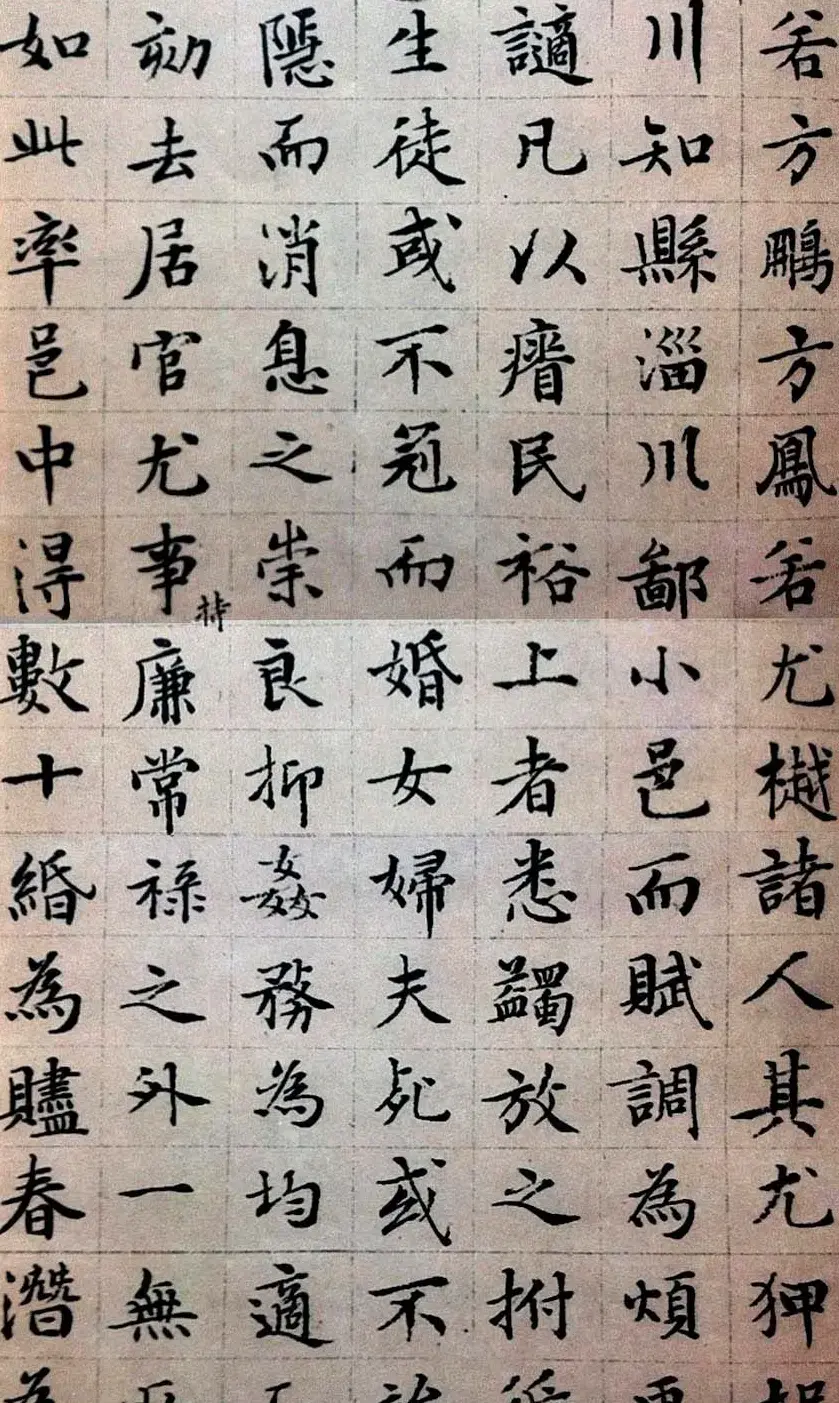 若方鵬方鳳若尤樾諸人其尤狎
川知縣淄川鄙小邑而賦調為煩
謫凡以瘠民裕上者悉蠲放之拊
生徒或不冠而婚女婦夫死或不
隱而消息之崇良抑姦務為均適
劾去居官尤事持廉常祿之外一無
如此率邑中得數十緡為贐春潛